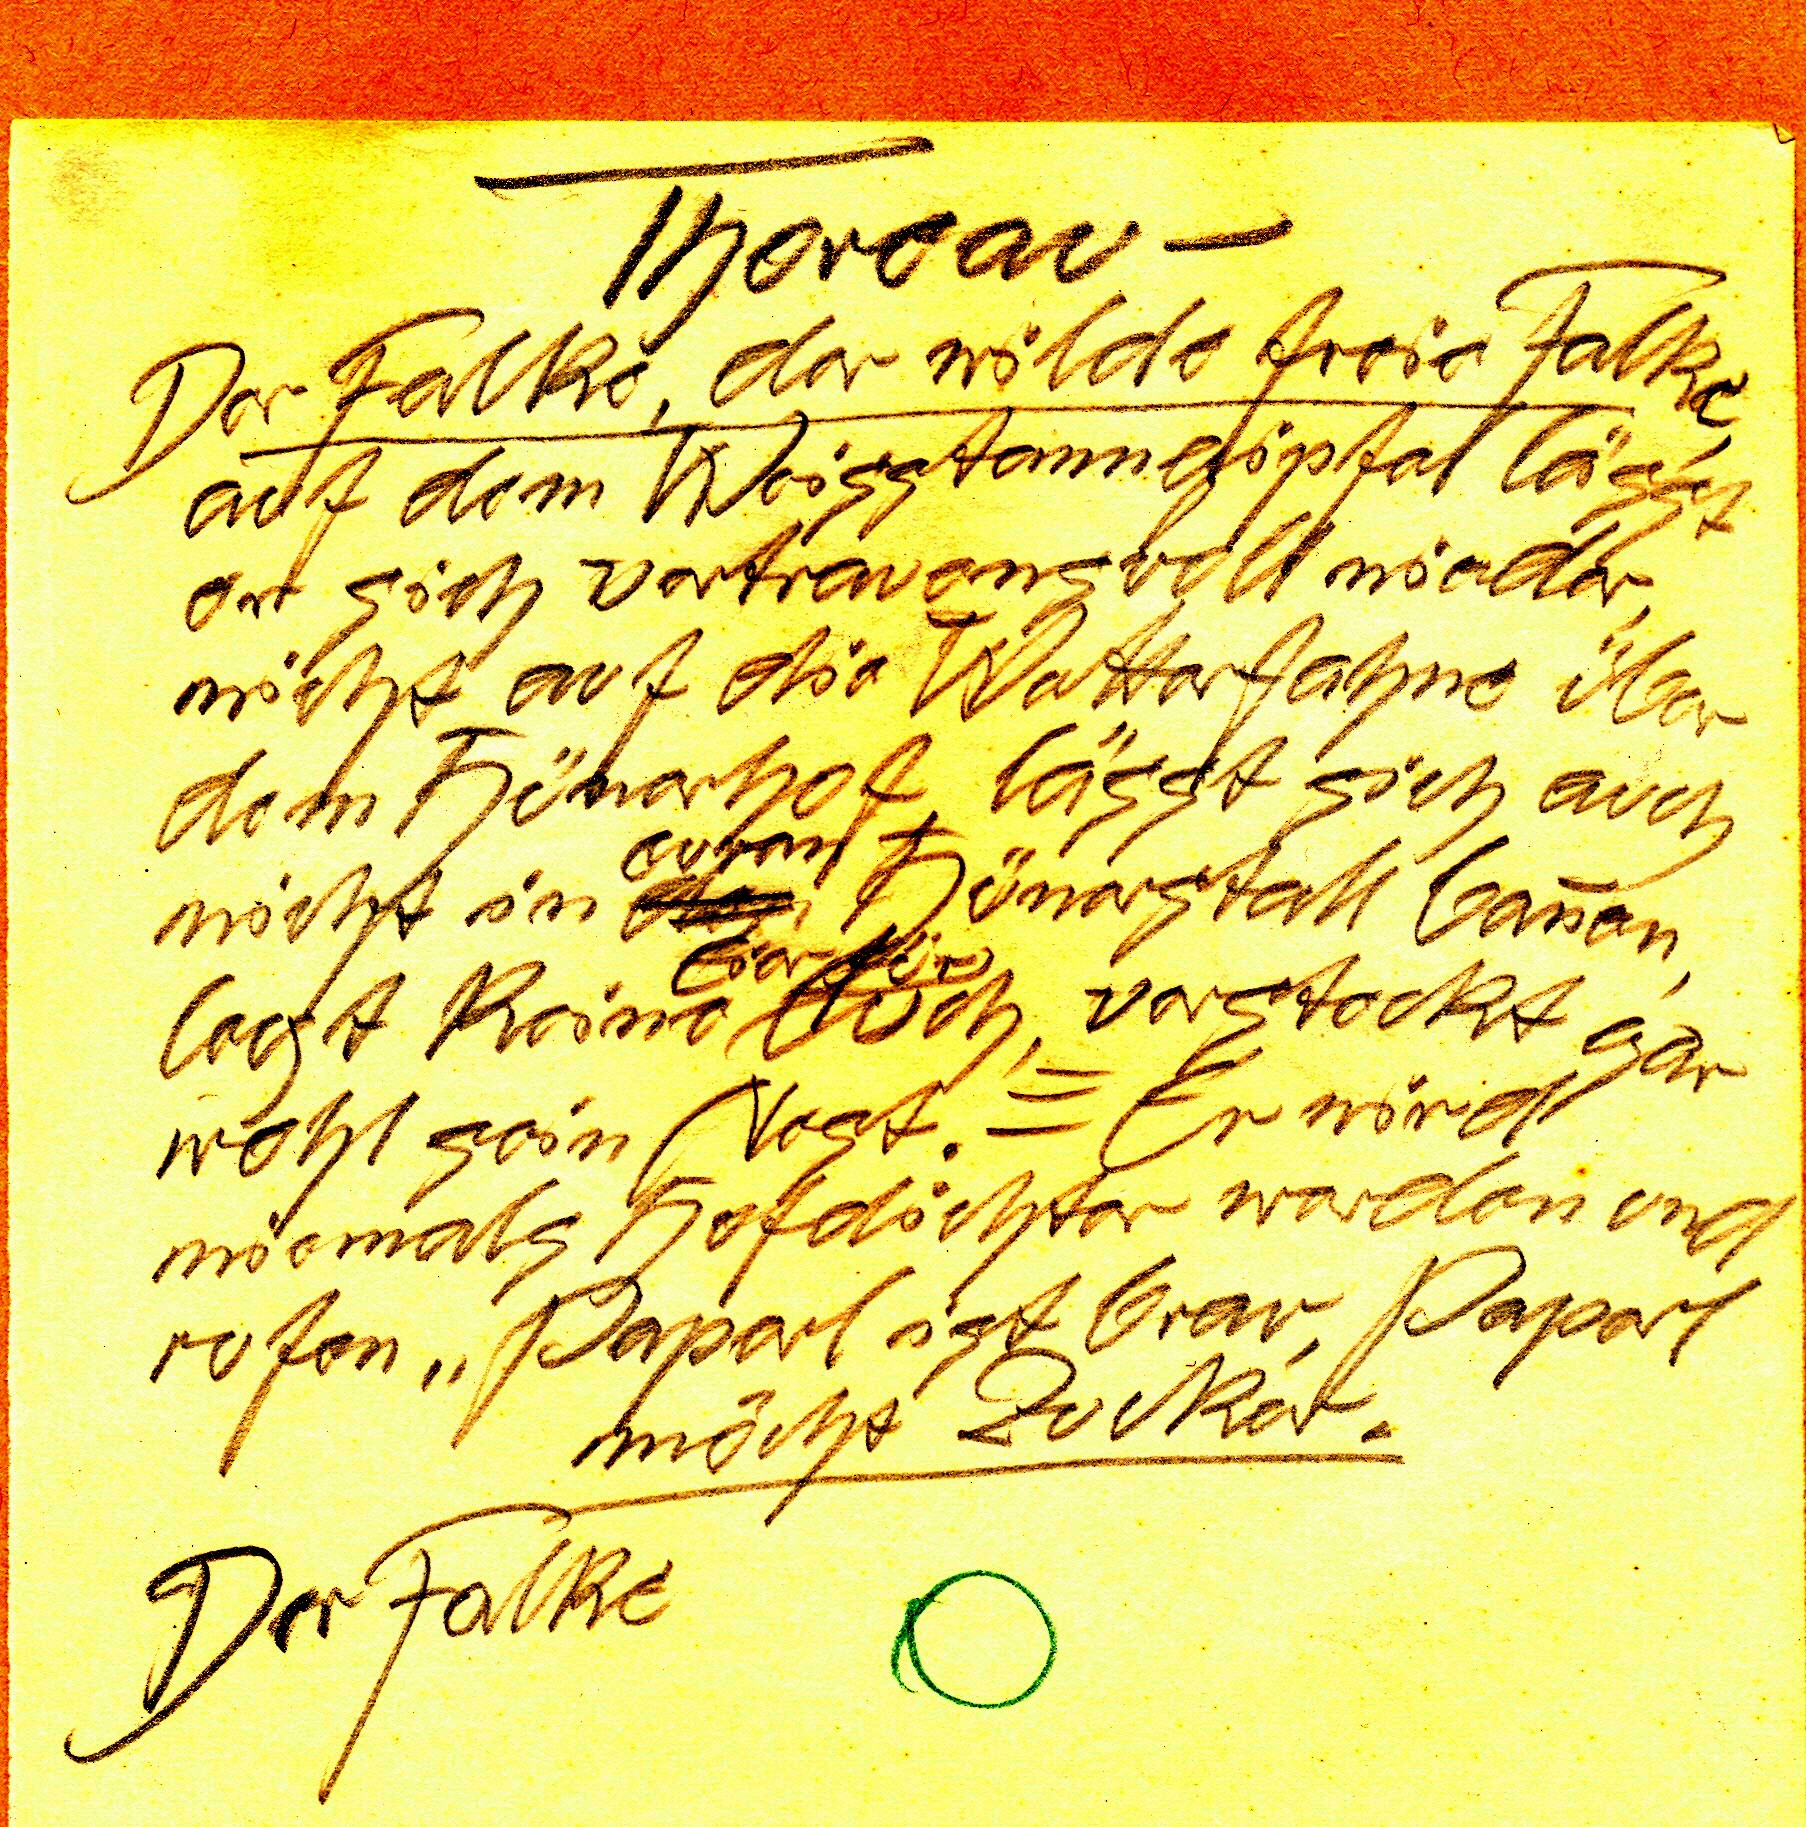 Thoreau —
Der Falke, der wilde freie Falke,
auf dem Weisstannegipfel lässt
er sich vertrauensvoll nieder,
nicht auf die Wetterfahne über
dem Hünerhof, lässt sich auch
nicht in euren Hünerstall bannen,
legt keine Eier für Euch, versteckt gar
wohl sein Nest. = Er wird
niemals Hofdichter werden und
rufen „Paperl ist brav, Paperl
möcht Zucker.
Der Falke